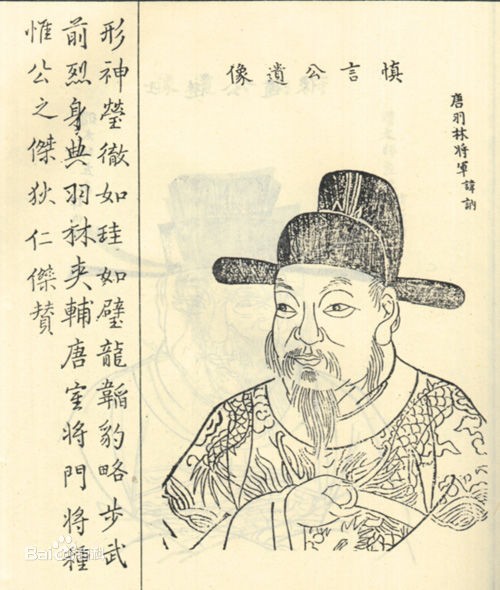 唐羽林將軍諱訥
慎言公遺像
形神瑩徹如珪如璧龍韜豹略步武
前烈身典羽林夾輔唐室將門將種
惟公之傑狄仁傑贊
Bai百科